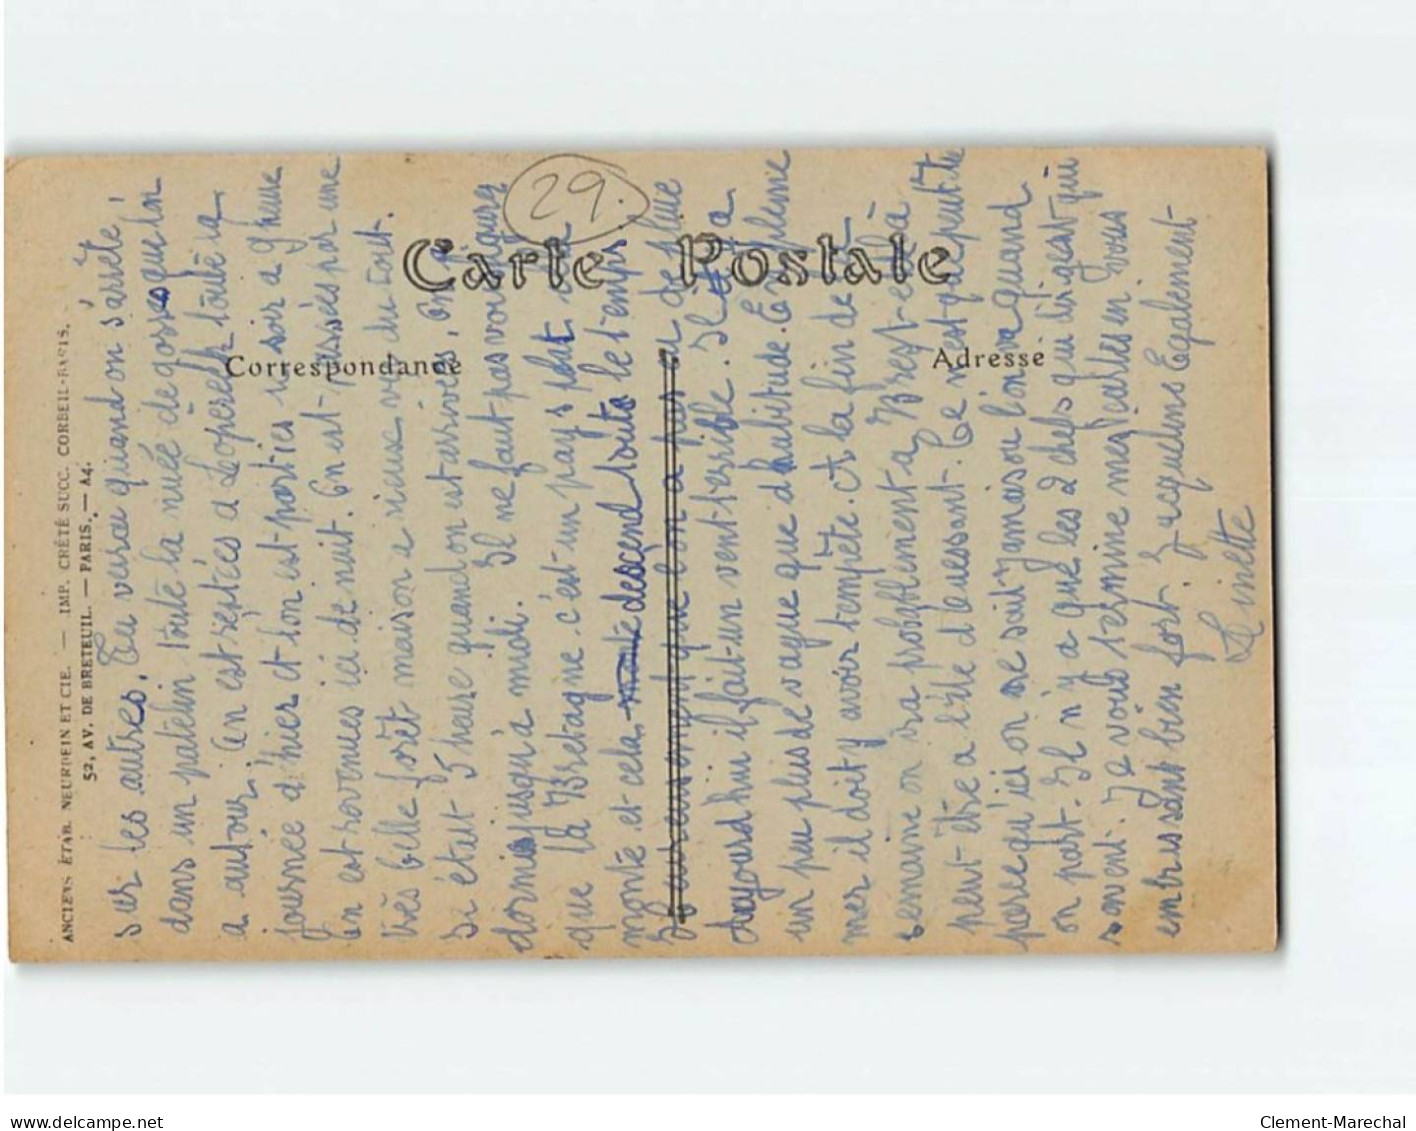 ANCIENS ÉTAB. NEURDEIN ET CIE. — IMP. CRÉTÉ SUCC. CORBEIL-PARIS.
52, AV. DE BRETEUIL. — PARIS. — A4.
29.
Carte Postale
Correspondance
Adresse
sur les autres. Tu verra quand on s'arrête,
dans un patelin toute la nuée de gosse qu'on
a autour. On est restées a Loperek toute la
journée d'hier et l'on est parties le soir a 9 heure
On est revenues ici de nuit. On est passées par une
très belle forêt maison a rieux vu du tout.
Se était 5 heure quand on est arrivées, On a
dormis jusqu'à midi. Il ne faut pas vous figure
que la Bretagne c'est un pays plat. Sa
monte et cela monte descend toute le temps
Heureusement que l'on a pas eu de pluie
Aujourd'hui il fait un vent terrible. Il y a
un peu plus de vague que d'habitude. En pleine
mer il doit y avoir tempête. A la fin de la
semaine on ira probablement a Brest et de là
peut être a l'île d'ouessant. Ce n'est que peut être
parce qu'ici on ne sait jamais ou l'on va quand
on part. Il n'y a que les 2 chefs qui dirigeat qui
savent. Je vous termine mes cartes en vous
embrassant bien fort. Jacquelins Egalement
Linette
Clement-Marechal
www.delcampe.net